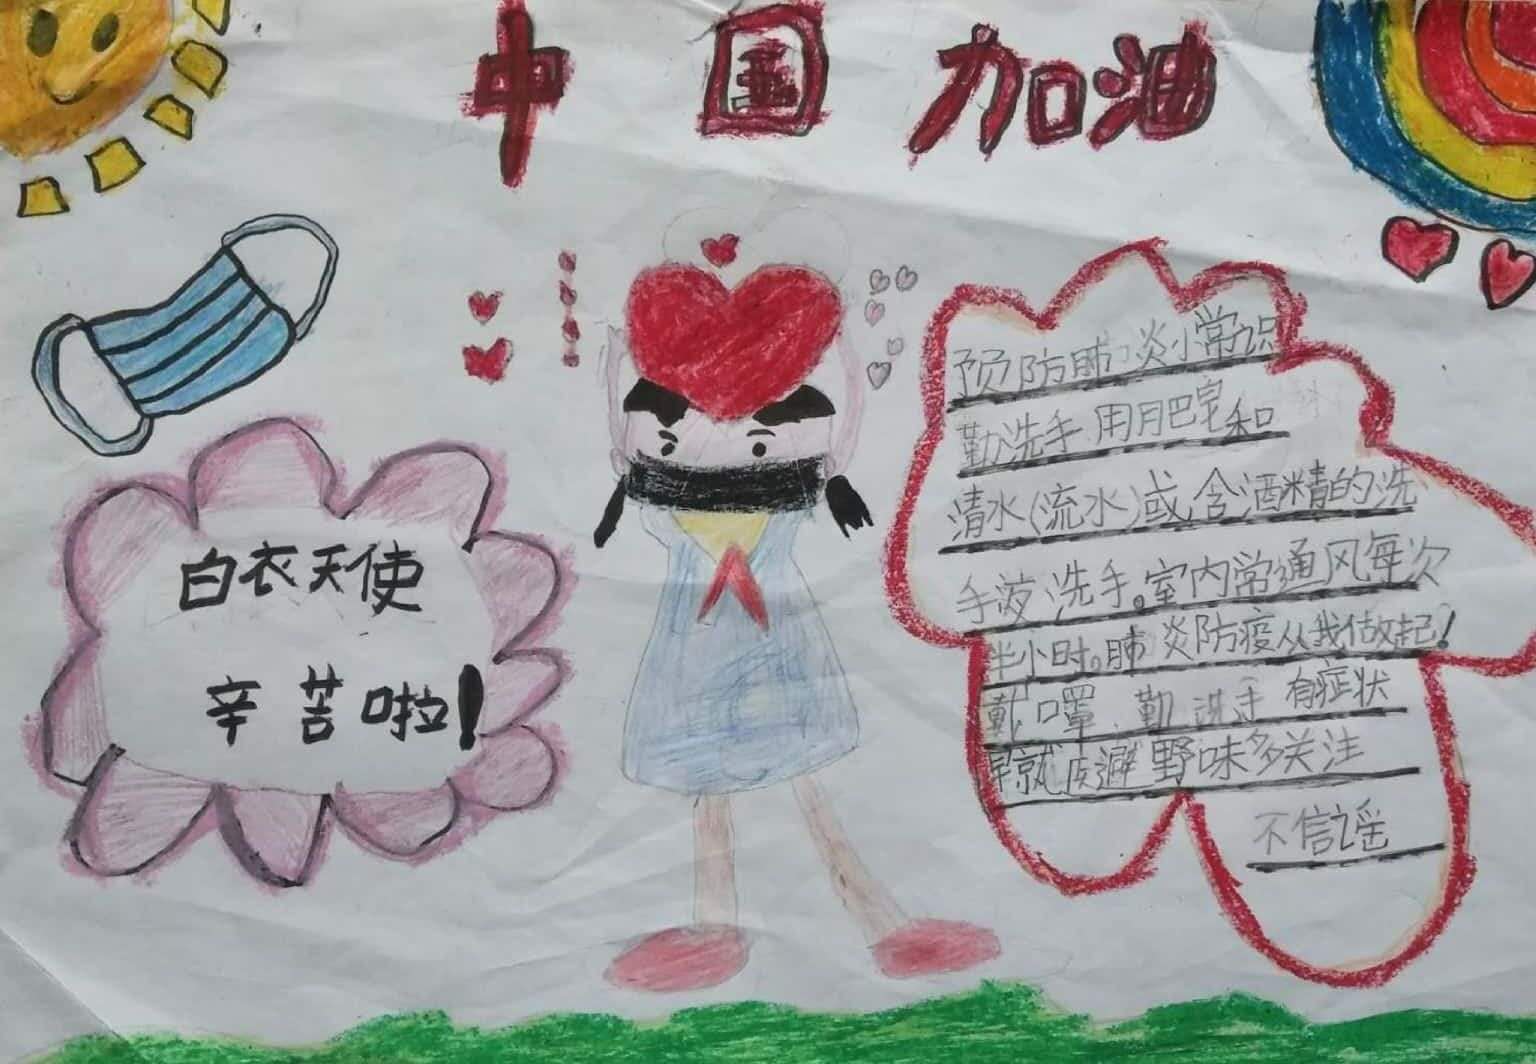 中国加油
白衣天使
辛苦啦!
预防肺炎小常识
勤洗手用月巴皂和
清水(流水)或含酒精的洗
手液洗手。室内常通风每次
半小时。肺炎防疫从我做起!
戴口罩 勤洗手有症状
早就 避野味多关注
不信谣